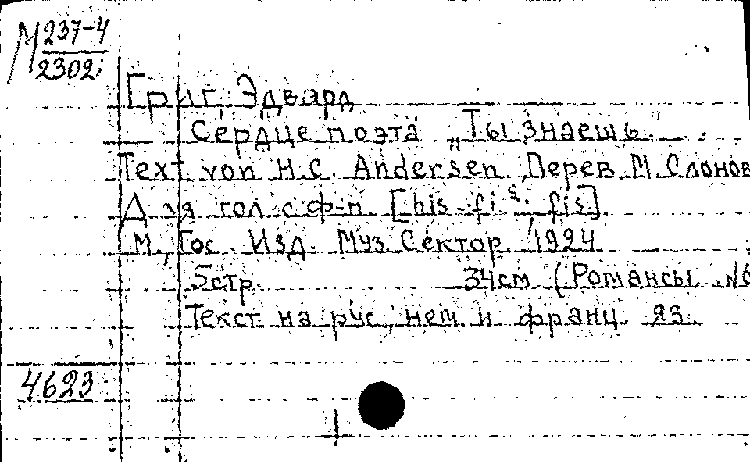 М 237-4
2302
Григ, Эдвард
Сердце поэта „Ты знаешь.
Text von H.C. Andersen Перев. М. Слонов
Для гол. с ф-п. [his - fis]
М., Гос. Изд. Муз. Сектор 1924
5стр. 34см (Романсы №
Текст на рус., нем. и франц. яз.
4623